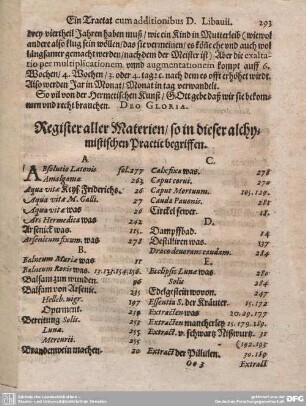 Ein Tractat cum additionibus D. Libavii. 293
drey viertheil Jahren haben muß / wie ein Kind in Mutterleib (wiewol
andere also flug sein wöllen / das sie vermeinen / es könne ehe und auch wol
langsamer gemacht werden / nach dem der Meister ist) Aber die exalta-
tio per multiplicationem unnd augmentationem kompt auff 6.
Wochen / 4. Wochen / 3. oder 4. tag ꝛc. nach dem es offt erhöhet wirdt.
Also werden Jar in Monat / Monat in tag verwandelt.
So vil von der Hermetischen Kunst / Gott gebe daß wir sie bekom-
men und recht brauchen. DEO GLORIA.
Register aller Materien / so in dieser alchy-
mistischen Practic begriffen.
A
Absolutio Latonis fol. 277
Amalgama 263
Aqua vitæ Keys. Friderichs. 26
Aqua vitæ M. Galli. 27
Aqua vitæ was 26
Ars Hermedica was 242
Arsenick was. 115
Arsenicum fixum was 278
B
Balneum Mariæ was 11
Balneum Roris was. 15. 137. 154. 156.
Balsam zum wunden. 96
Balsam von Arsenic. 215
Helleb. nigr. 197
Operment. 219
Bereitung Solis. 255
Lunæ. 255
Mercurii. 255
Brandenwein machen. 20
C.
Calecfica was. 278
Caput corvi. 270
Caput Mortuum. 105. 129.
Cauda Pavonis. 281
Circkel fewer. 18.
D.
Dampffbad. 14
Destilliren was. 137
Draco devorans caudam. 284
E.
Ecclypsis Lunæ was 280
Solis 284
Edelgestein wovon. 247
Essentia S. der Kräuter. 15. 172
Extracten was 20. 29. 177
Extracten mancherley 15. 179. 190.
Extract. v. schwartz Nißwurtz 31
(192. 195
Extract der Pillulen. 30. 189
Oo 3 Extract